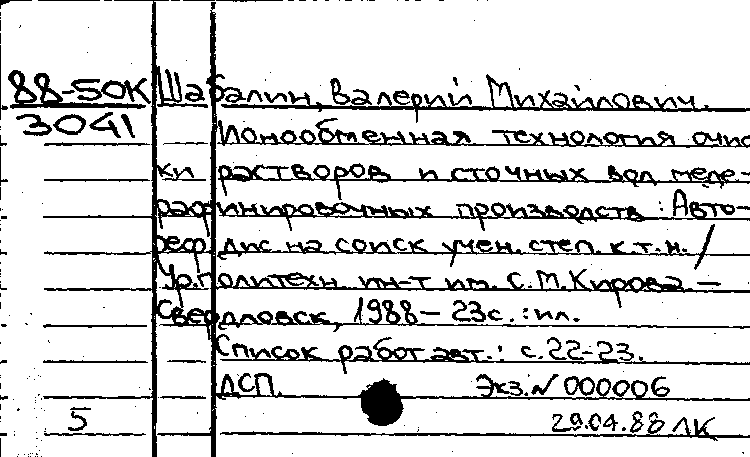 88-50К Шабалин, Валерий Михайлович.
3041 Ионообменная технология очист
ки растворов и сточных вод меде-
рафинировочных производств: Авто-
реф. дис. на соиск. учен. степ. к.т.н. /
Ур. политехн. ин-т им. С.М. Кирова —
Свердловск, 1988 – 23с. : ил.
Список работ авт.: с. 22-23.
ДСП. Экз. N 000006
5 29.04.88 ЛК